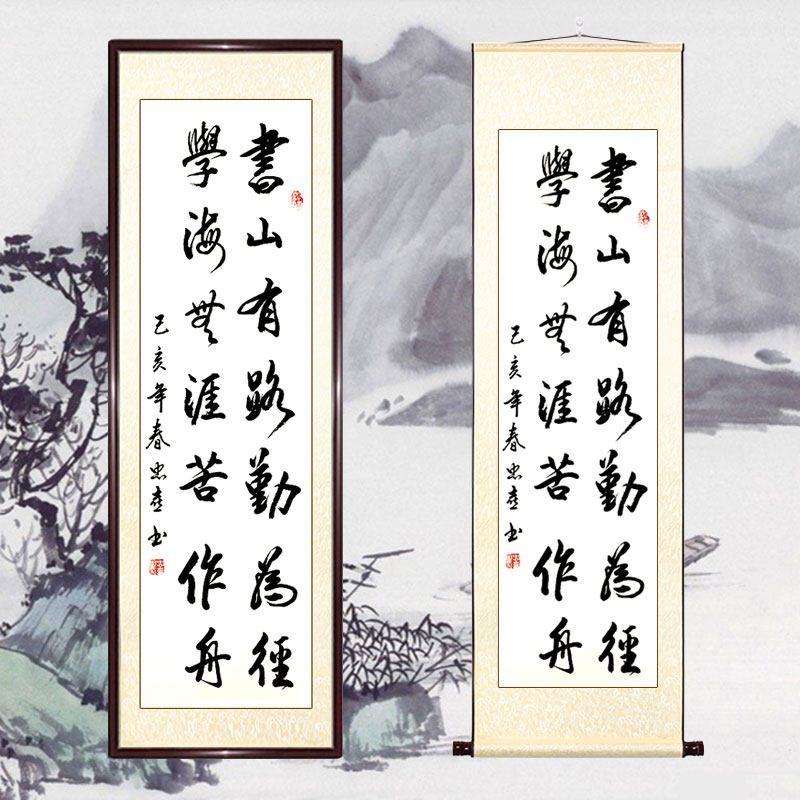 書山有路勤為徑
學海無涯苦作舟
己亥年春忠书
書山有路勤為徑
學海無涯苦作舟
己亥年春忠书